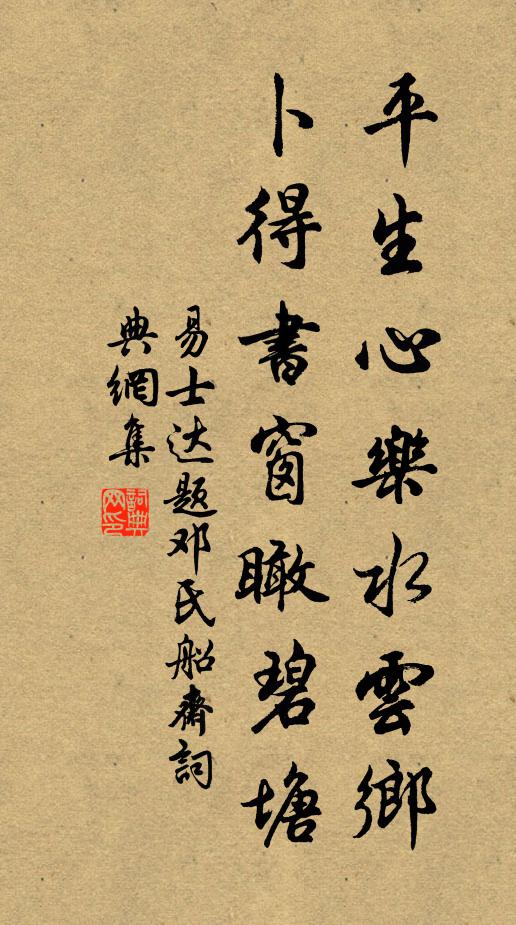 平生心樂水雲鄉
卜得書窗瞰碧塘
易士达题邓氏船齋詞
典網集
詞典
网印